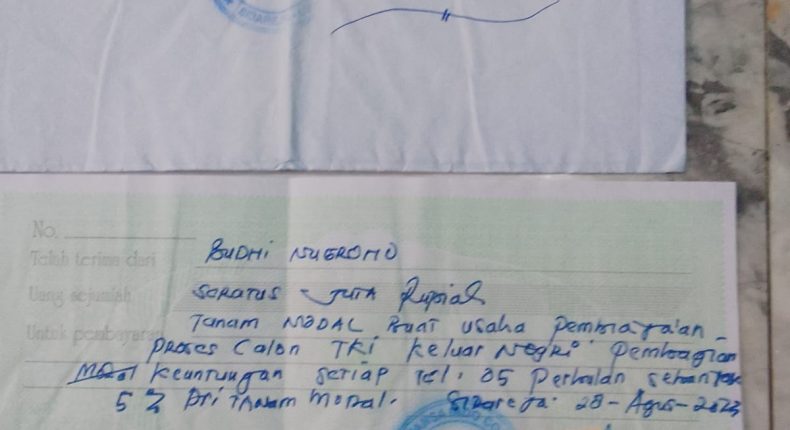 No.
Telah terima dari BUDHI NUGROHO
Uang sejumlah SERATUS - JUTA Rupiah
Untuk pembayaran Tanam MODAL Buat usaha pembiayaian
proses Calon TKI Keluar Negri pembagian
Keuntungan Setiap Tgl. 05 Perbulan
5 % Dri Tanam Modal. Sidareja. 28 - Agus - 2023